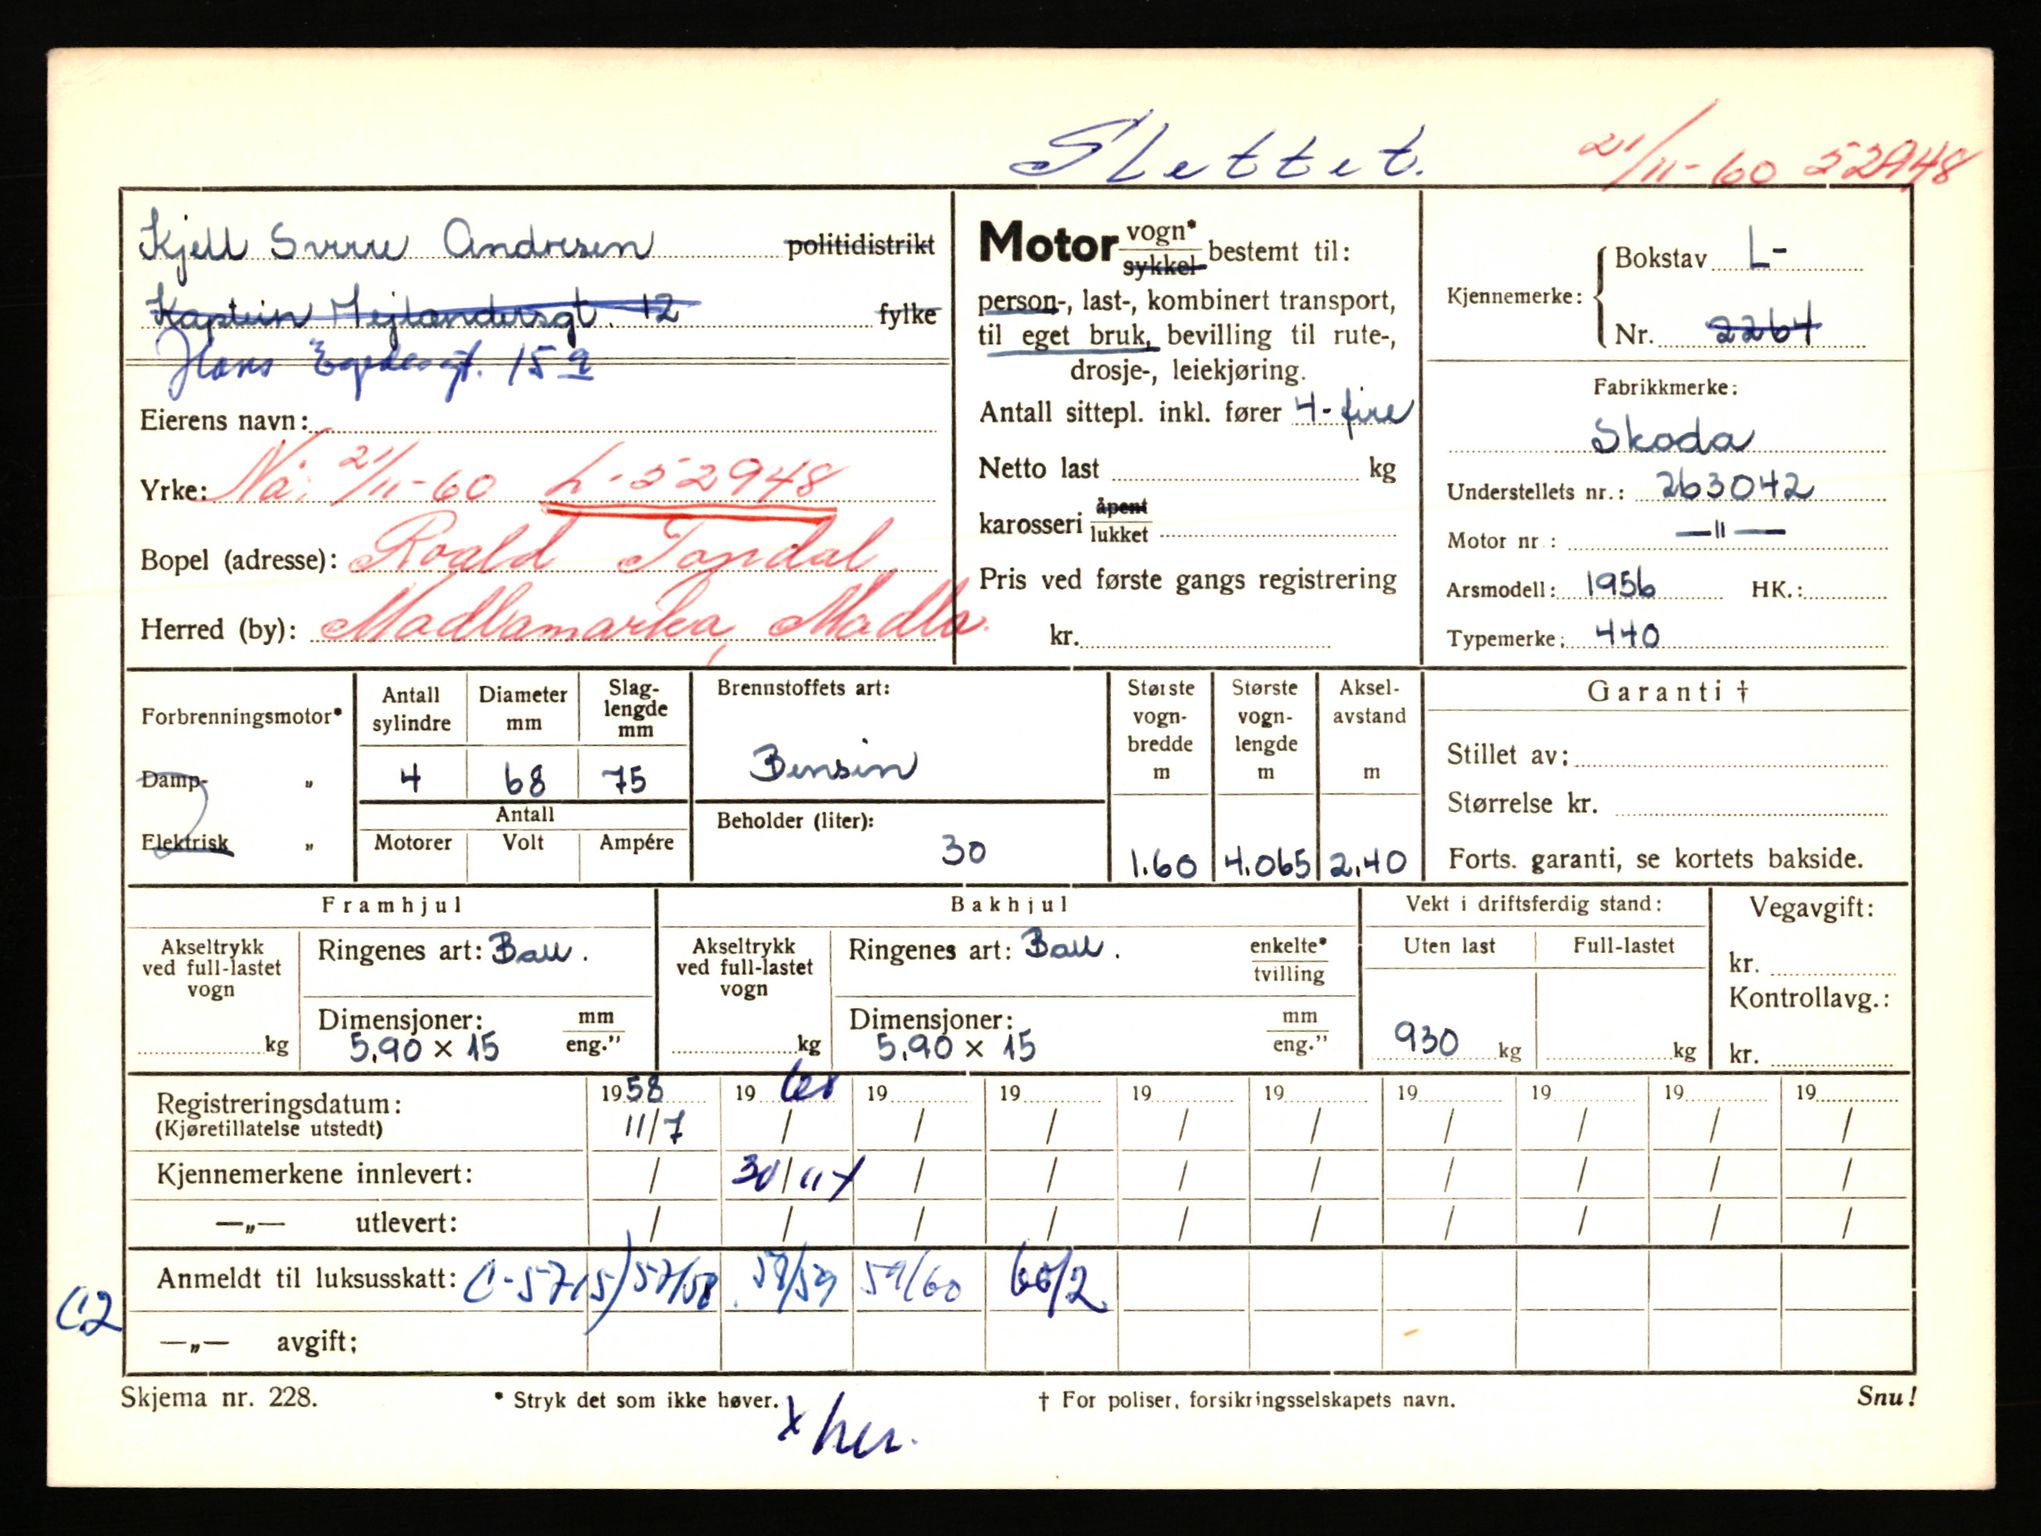 Slettet. 21/11-60 52948
Kjell Sverre Andresen politidistrikt
Kaptein Mejlændersgt. 12 fylke
Hans Egedesgt. 15 a
Eierens navn:
Yrke: Nå: 21/11-60 L-52948
Bopel (adresse): Roald Tondal
Herred (by): Madlamarka, Madla.
Motor vogn* / sykkel bestemt til:
person-, last-, kombinert transport,
til eget bruk, bevilling til rute-,
drosje-, leiekjøring.
Antall sittepl. inkl. fører 4-fire
Netto last kg
karosseri åpent / lukket
Pris ved første gangs registrering
kr.
Kjennemerke: Bokstav L-
Nr. 2264
Fabrikkmerke:
Skoda
Understellets nr.: 263042
Motor nr : —"—
Arsmodell: 1956 HK.:
Typemerke: 440
Forbrenningsmotor*
Damp- „
Elektrisk „
Antall sylindre Diameter mm Slag-lengde mm
4 68 75
Antall
Motorer Volt Ampére
Brennstoffets art:
Bensin
Beholder (liter):
30
Største vogn-bredde m Største vogn-lengde m Aksel-avstand m
1.60 4.065 2.40
Garanti †
Stillet av:
Størrelse kr.
Forts. garanti, se kortets bakside.
Framhjul
Akseltrykk ved full-lastet vogn
kg
Ringenes art: Ball.
Dimensjoner: mm / eng."
5,90 x 15
Bakhjul
Akseltrykk ved full-lastet vogn
kg
Ringenes art: Ball. enkelte* / tvilling
Dimensjoner: mm / eng."
5,90 x 15
Vekt i driftsferdig stand:
Uten last Full-lastet
930 kg kg
Vegavgift:
kr.
Kontrollavg.:
kr.
Registreringsdatum: 1958 19 60 19 19 19 19 19 19 19 19
(Kjøretillatelse utstedt) 11/7 / / / / / / / / /
Kjennemerkene innlevert: / 30/11 x / / / / / / / /
—„— utlevert: / / / / / / / / / /
Anmeldt til luksusskatt: C-5715) 57/58 58/59 59/60 60/2
C2
—„— avgift;
Skjema nr. 228. * Stryk det som ikke høver. † For poliser, forsikringsselskapets navn. Snu!
x her.